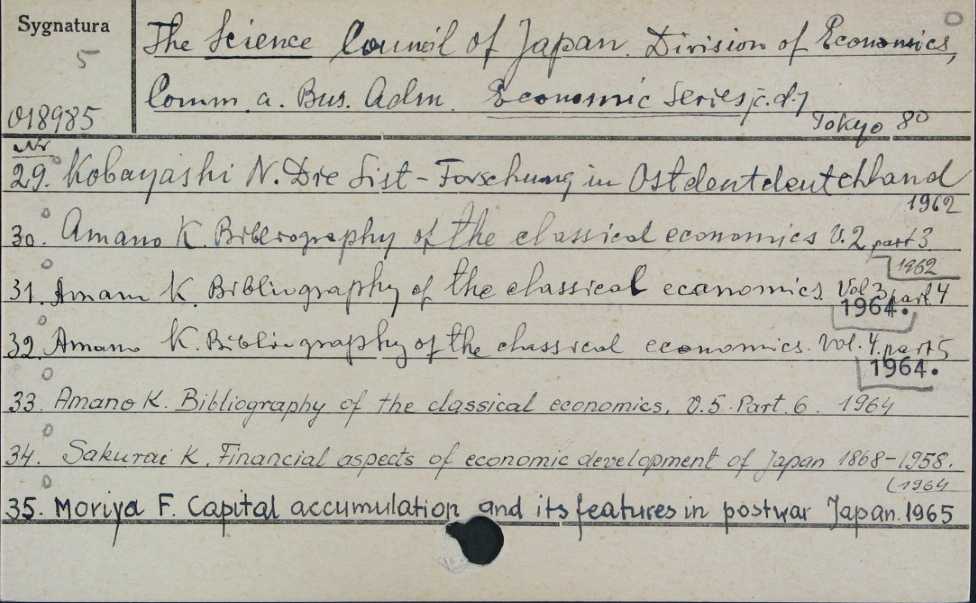 Sygnatura
5
018985
The Science Council of Japan. Division of Economics,
Comm. a. Bus. Adm. Economic Series /c.d./
Tokyo 8°
Nr
29. Kobayashi N. Dre List-Forschung in Ostdeutdeutchland
1962
30. Amano K. Bibliography of the classical economics V.2 part 3
1962
31. Amano K. Bibliography of the classical economics Vol 3 part 4
1964.
32. Amano K. Bibliography of the classical economics. Vol. 4. part 5
1964.
33. Amano K. Bibliography of the classical economics. V.5. Part. 6. 1964
34. Sakurai K. Financial aspects of economic development of Japan 1868-1958.
1964
35. Moriya F. Capital accumulation and its features in postwar Japan. 1965